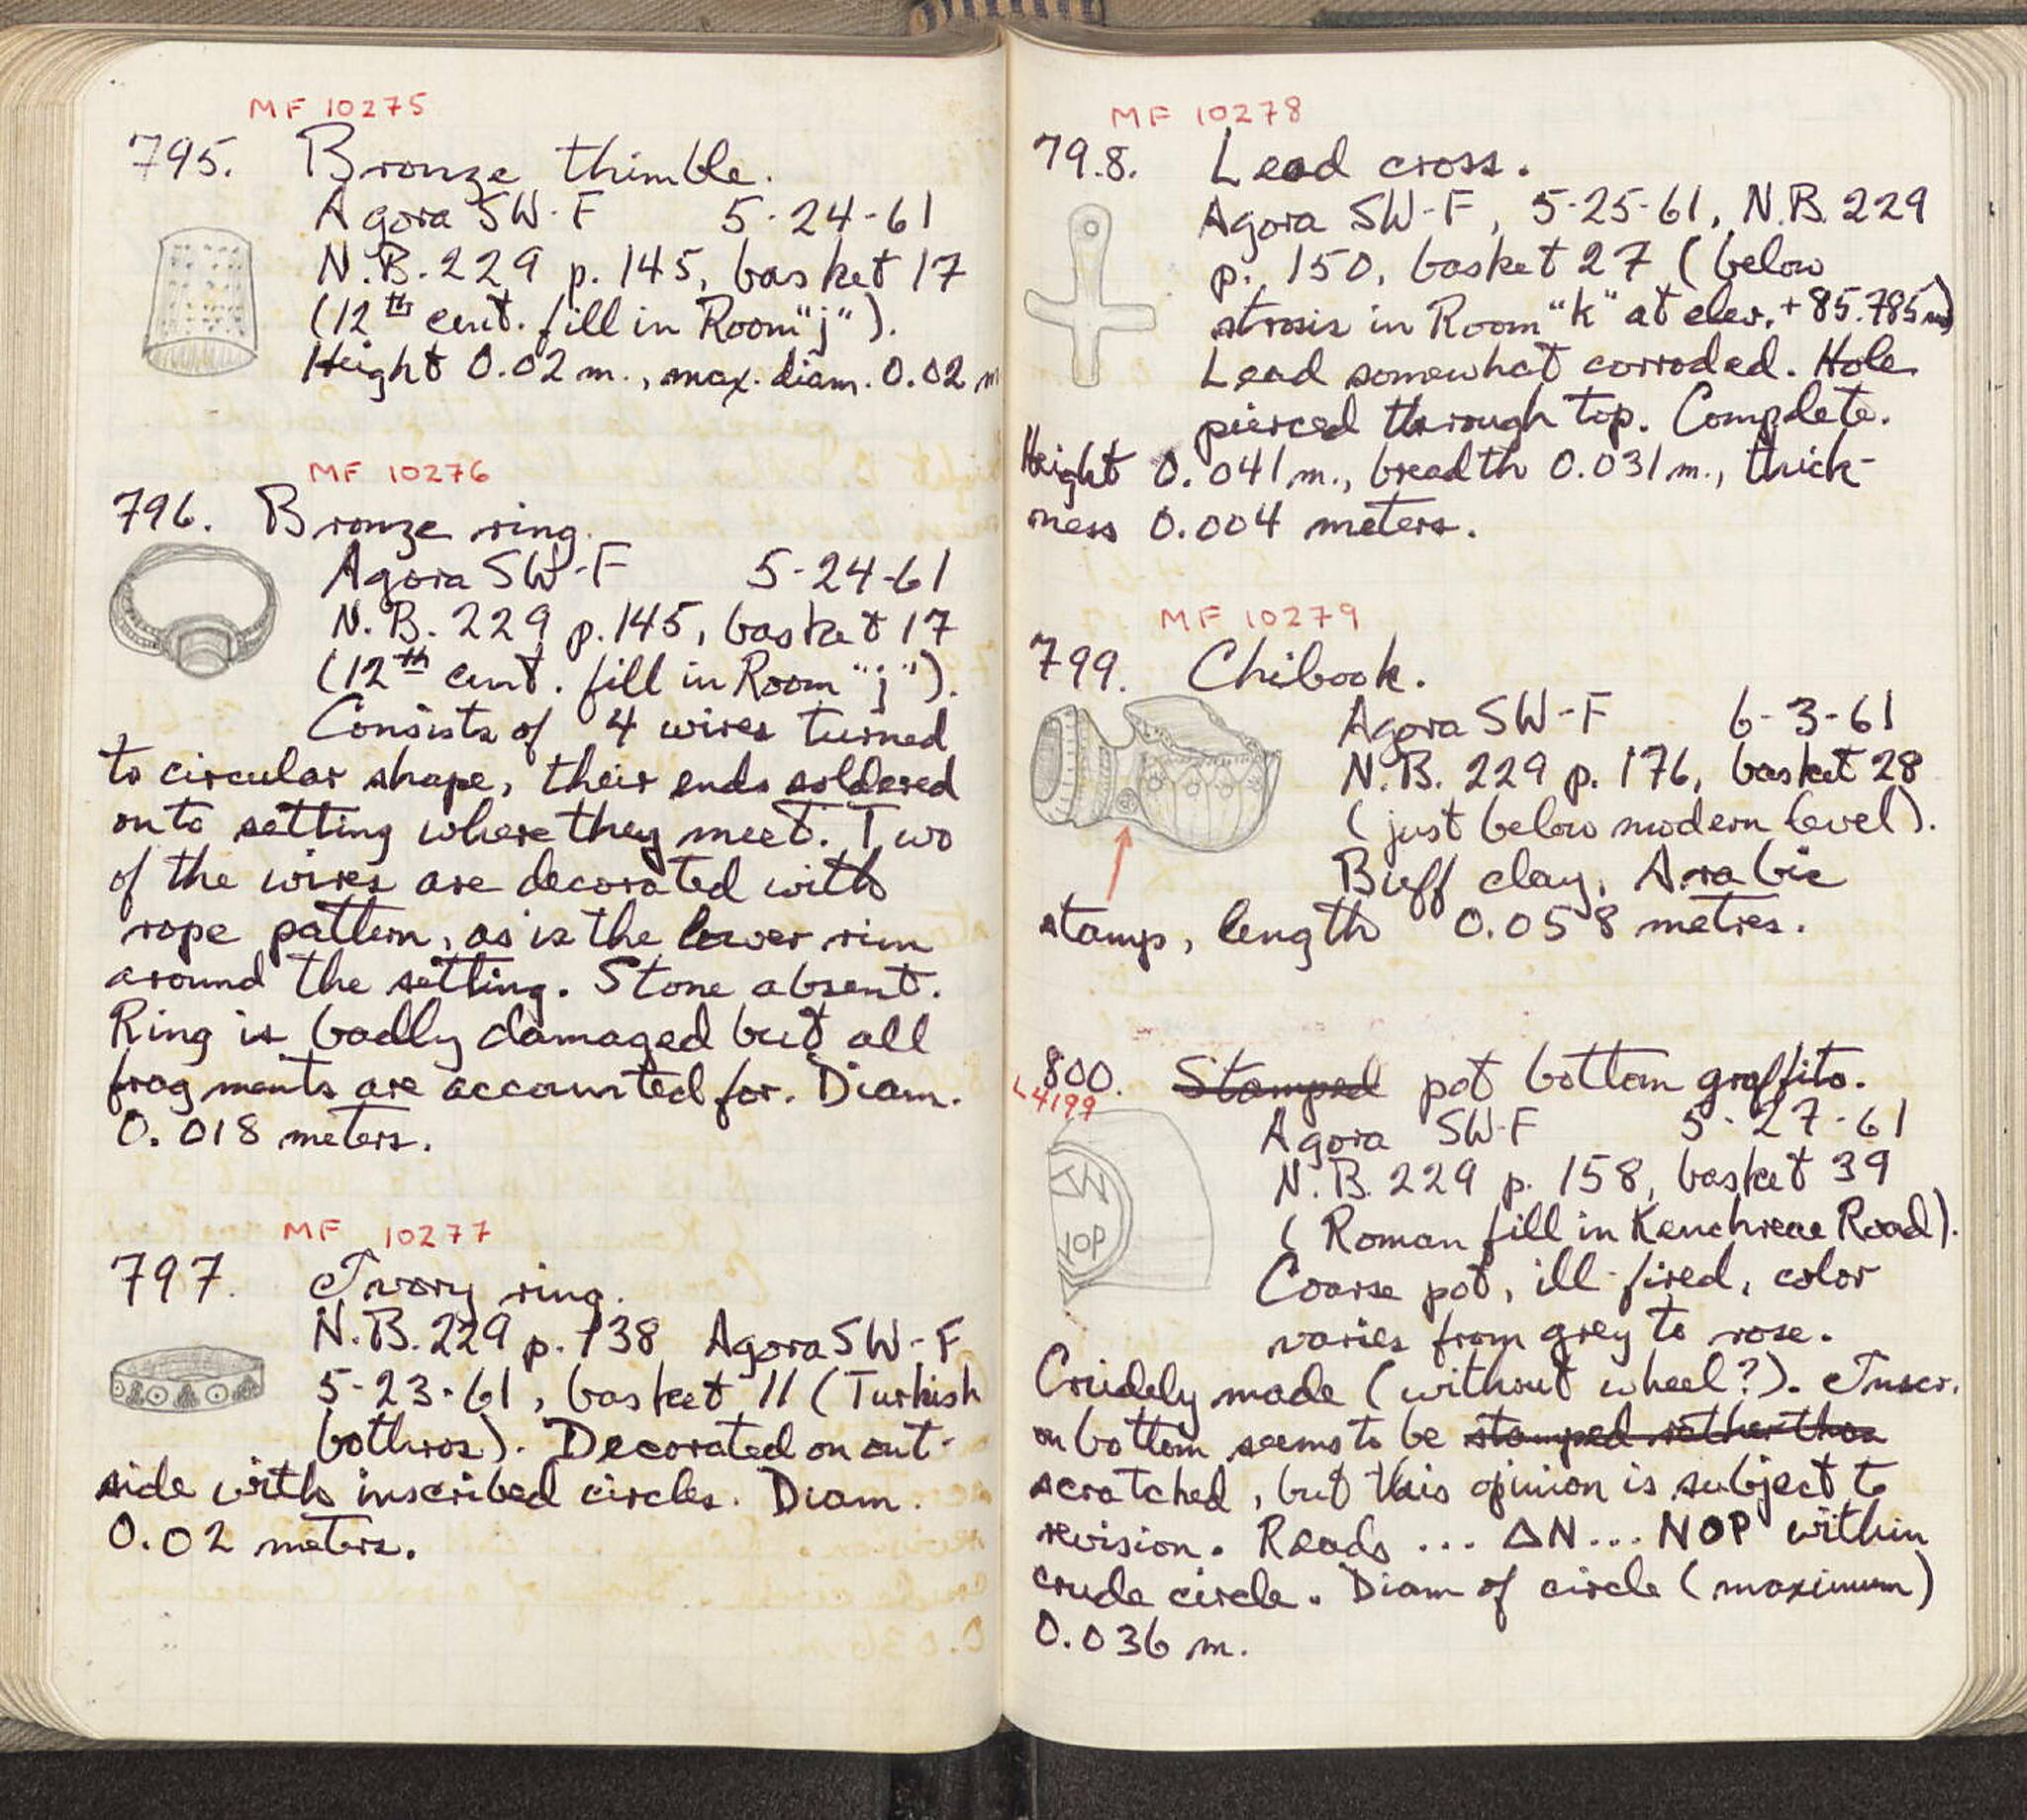 MF 10275
795. Bronze thimble.
Agora SW-F 5-24-61
N.B. 229 p. 145, basket 17
(12th cent. fill in Room "j").
Height 0.02 m., max. diam. 0.02 m
MF 10276
796. Bronze ring.
Agora SW-F 5-24-61
N.B. 229 p. 145, basket 17
(12th cent. fill in Room "j").
Consists of 4 wires turned
to circular shape, their ends soldered
onto setting where they meet. Two
of the wires are decorated with
rope pattern, as is the lower rim
around the setting. Stone absent.
Ring is badly damaged but all
fragments are accounted for. Diam.
0.018 meters.
MF 10277
797. Ivory ring.
N.B. 229 p. 138 Agora SW-F
5-23-61, basket 11 (Turkish
bothros). Decorated on out-
side with inscribed circles. Diam.
0.02 meters.
MF 10278
798. Lead cross.
Agora SW-F, 5-25-61, N.B. 229
p. 150, basket 27 (below
strosis in Room "k" at elev. +85.785 m)
Lead somewhat corroded. Hole
pierced through top. Complete.
Height 0.041 m., breadth 0.031 m., thick-
ness 0.004 meters.
MF 10279
799. Chibook.
Agora SW-F 6-3-61
N.B. 229 p. 176, basket 28
(just below modern level).
Buff clay, Arabic
stamp, length 0.058 metres.
800. Stamped pot bottom graffito.
L4199
Agora SW-F 5-27-61
N.B. 229 p. 158, basket 39
(Roman fill in Kenchreae Road).
Coarse pot, ill-fired, color
varies from grey to rose.
Crudely made (without wheel?). Inscr.
on bottom seems to be stamped rather than
scratched, but this opinion is subject to
revision. Reads ... ΔN... NOP within
crude circle. Diam of circle (maximum)
0.036 m.